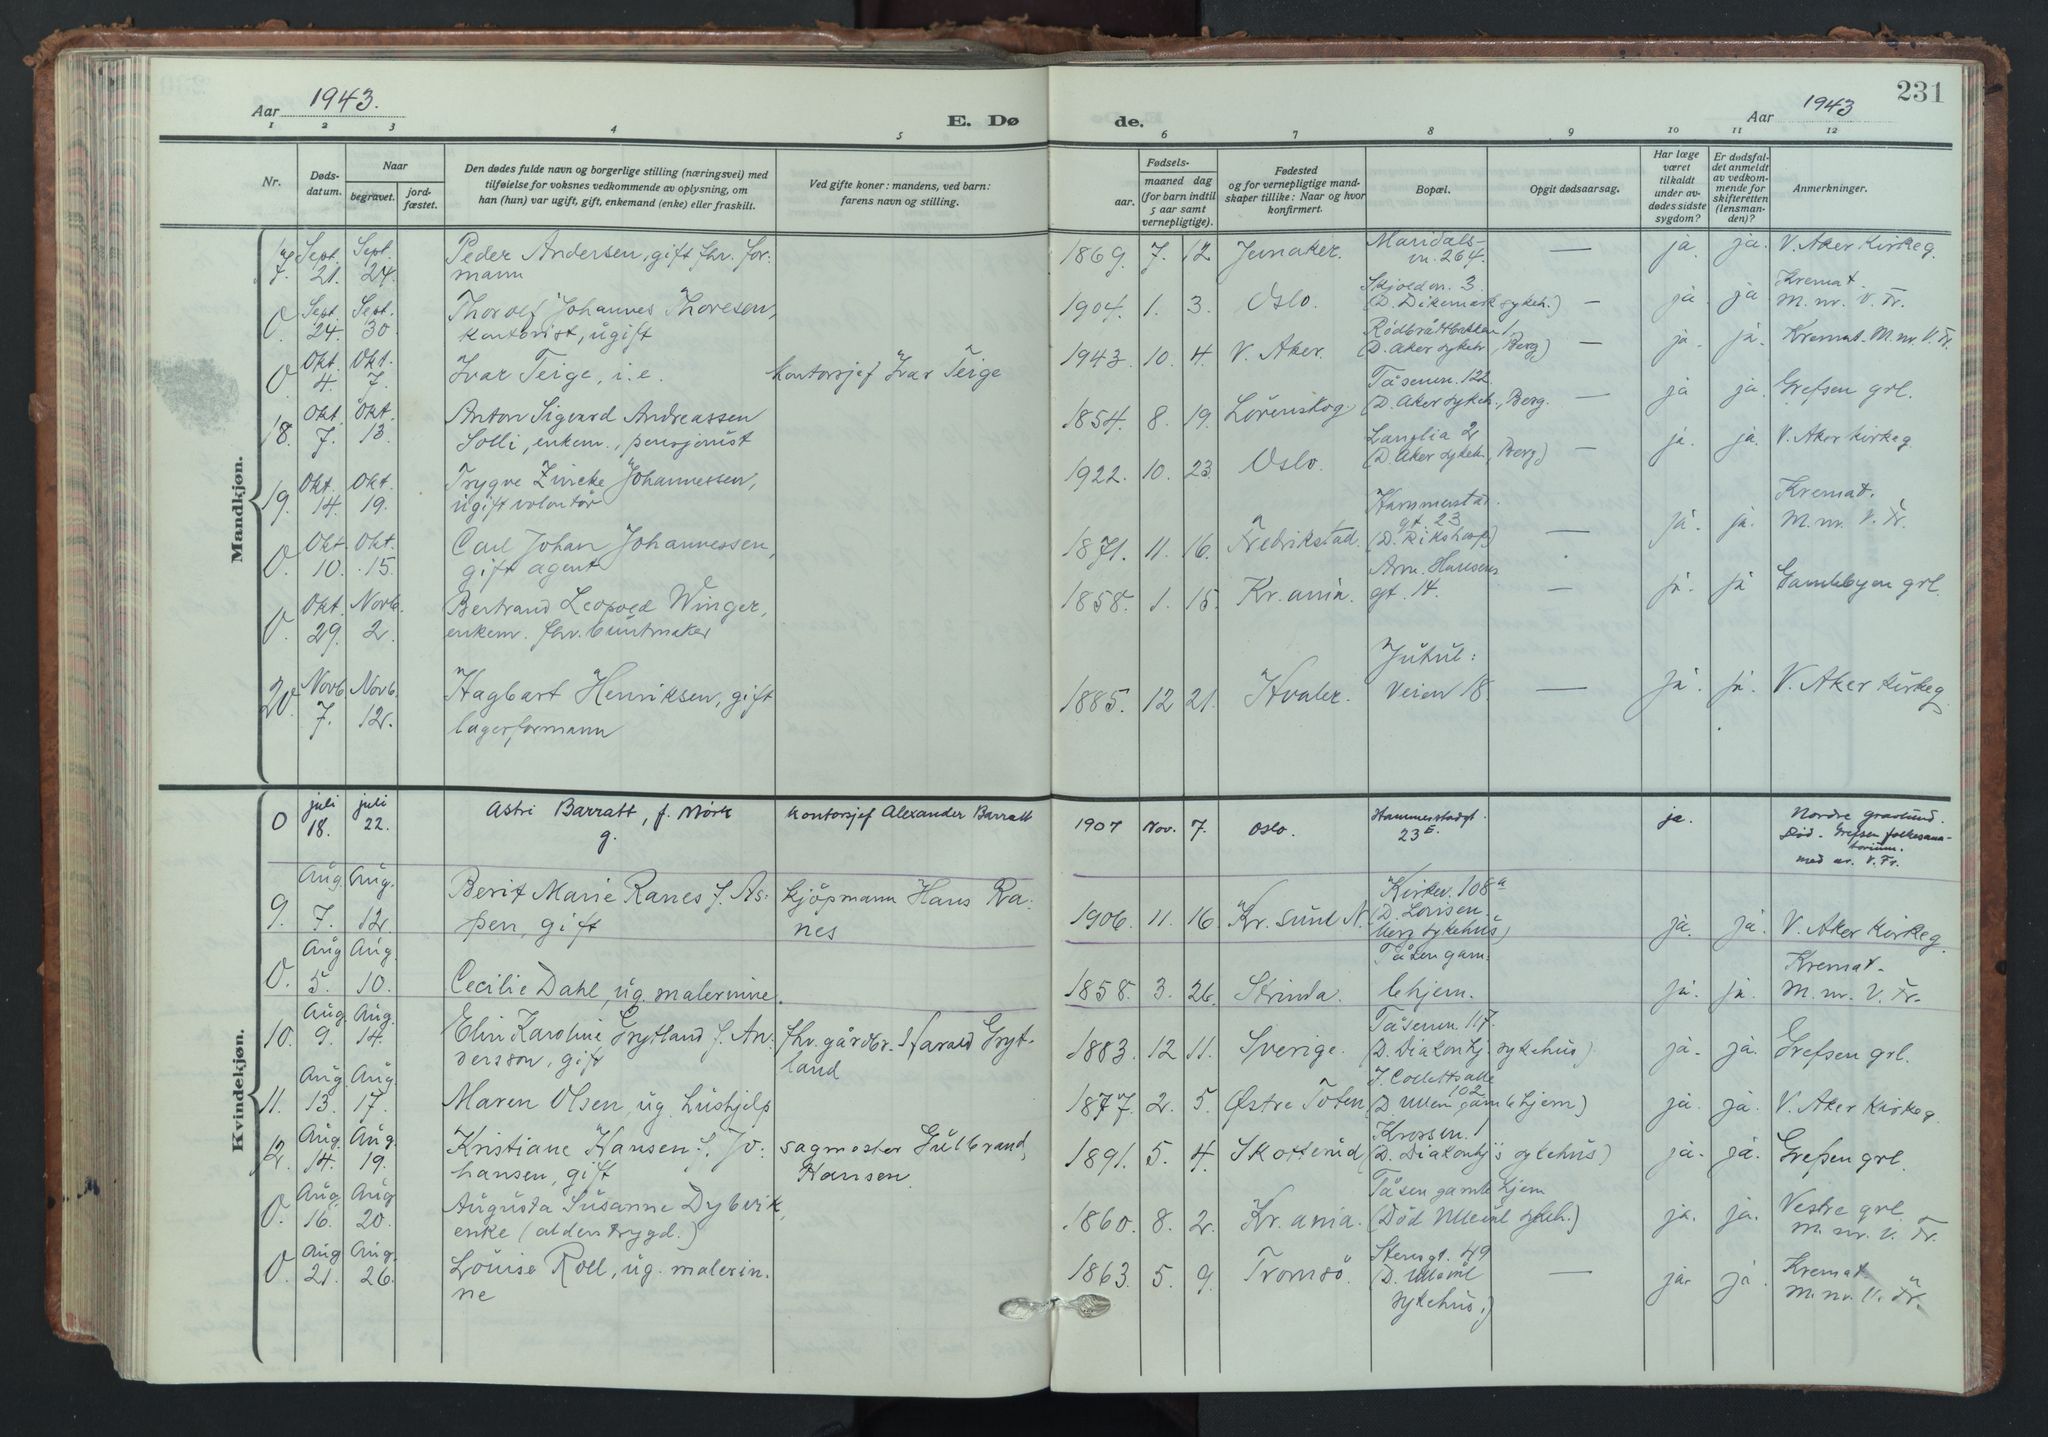 Aar 1943.
E. Dø
de.
Aar 1943
231
1 2 3 4 5 6 7 8 9 10 11 12
Nr.
Døds-
datum.
Naar
begravet.
jord-
fæstet.
Den dødes fulde navn og borgerlige stilling (næringsvei) med
tilføielse for voksnes vedkommende av oplysning, om
han (hun) var ugift, gift, enkemand (enke) eller fraskilt.
Ved gifte koner: mandens, ved barn:
farens navn og stilling.
Fødsels-
aar.
maaned dag
(for barn indtil
5 aar samt
vernepligtige).
Fødested
og for vernepligtige mand-
skaper tillike: Naar og hvor
konfirmert.
Bopæl.
Opgit dødsaarsag.
Har læge
været
tilkaldt
under av-
dødes sidste
sygdom?
Er dødsfal-
det anmeldt
av vedkom-
mende for
skifteretten
(lensman-
den)?
Anmerkninger.
Mandkjøn.
Sept. Sept. Peder Andersen, gift fhv. for-
21. 24. mann
1869. 7. 12 Jevnaker. Maridals-
v. 264. — ja. ja. V. Aker Kirkeg.
0. Sept. Sept. Thorolf Johannes Thoresen,
24. 30 kontorist, ugift
1904. 1. 3. Oslo. Skjoldvn. 3.
(D. Dikemark sykeh.) — ja ja Kremat.
M. nr. V. Fr.
0. Okt. Okt. Ivar Teige, i.e. kontorsjef Ivar Teige
4. 7.
1943. 10. 4 V. Aker. Rødbråttbakken 1,
(D. Aker sykeh., Berg) — ja. ja. Kremat. M. nr. V. Fr.
18. Okt. Okt. Anton Sigvard Andreassen
7. 13. Solli, enkem., pensjonist
1854. 8. 19. Lørenskog. Tåsenvn. 122.
(D. Aker sykeh., Berg. — ja ja Grefsen grl.
19. Okt. Okt. Trygve Zincke Johannessen,
14. 19. ugift volontør
1922. 10. 23. Oslo. Langlia 2
(D. Aker sykeh., Berg) — ja. ja. V. Aker kirkeg.
0. Okt. Okt. Carl Johan Johannessen,
10. 15. gift agent
1871. 11. 16. Fredrikstad. Hammerstad.
gt. 23
(D. Rikshosp) — ja. ja. Kremat.
M. nr. V. Fr.
0. Okt. Novb. Bertrand Leopold Winger,
29. 2. enkem. fhv. buntmaker
1858. 1. 15. Kr.ania. Arne Hansens
gt. 14. — ja. ja Gamlebyen grl.
20. Novb. Novb. Hagbart Henriksen, gift
7. 12. lagerformann
1885. 12 21. Hvaler. Jutul:
veien 18. — ja. ja. V. Aker kirkeg.
Kvindekjøn.
0 juli juli Astri Barratt, f. Mørk kontorsjef Alexander Barratt
18. 22. g.
1907 Nov. 7. Oslo. Hammerstadgt.
23 E. ja. Nordre gravlund.
Død. Grefsen folkesana-
torium.
med nr. V. Fr.
9. Aug. Aug. Berit Marie Ranes f. As- kjøpmann Hans Ra-
7. 12. pen, gift nes
1906. 11. 16 Kr. sund N. Kirkev. 108a
(D. Lovisen-
berg sykehus) ja. ja. V. Aker Kirkeg.
0. Aug Aug. Cecilie Dahl, ug. malerinne.
5. 10.
1858. 3. 26. Strinda. Tåsen gam-
lehjem. ja. ja. Kremat.
M. nr. V. Fr.
10. Aug. Aug. Elin Karoline Grytland f. An- fhv. gårdbr. Harald Gryt-
9. 14. dersson, gift land
1883. 12 11. Sverige. Tåsenvn. 117.
(D. Diakonhj. sykehus) ja. ja. Grefsen grl.
11. Aug Aug Maren Olsen, ug. hushjelp
13. 17.
1877. 2. 5. Østre Toten J. Colletts alle
102
(D. Ullevål gamlehjem) ja. ja. V. Aker Kirkeg.
12. Aug. Aug. Kristiane Hansen f. Jo- sagmester Gulbrand
14. 19. hansen, gift Hansen.
1891. 5. 4. Skotterud Krossen. 1
(D. Diakonhj's sykehus) ja. ja. Grefsen grl.
0. Aug. Aug Augusta Susanne Dybvik,
16. 20. enke (alderstrygd.)
1860. 8. 2. Kr. ania. Tåsen gamlehjem
(Død Ullevål sykeh.) ja. ja. Vestre grl
M. nr. V. Fr.
0. Aug Aug. Louise Roll, ug. malerin-
21. 26. ne
1863. 5. 9. Tromsø. Stensgt. 49
(D. Ullevål
sykehus.) — ja. ja. Kremat.
M. nr. V. Fr.